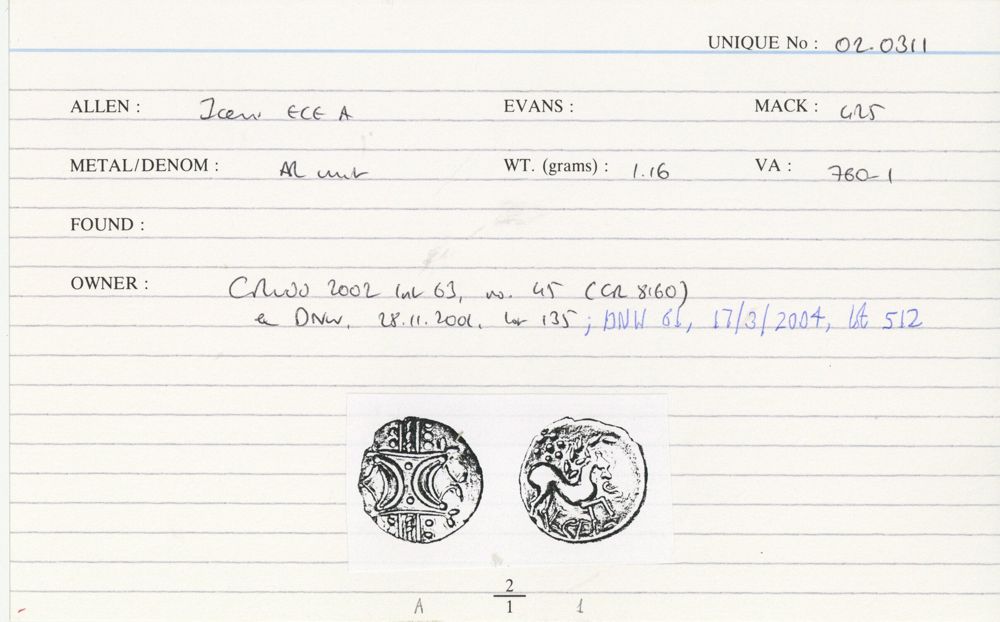 UNIQUE No : 02.0311
ALLEN : Iceni ECE A EVANS : MACK : 425
METAL/DENOM : AR unit WT. (grams) : 1.16 VA : 760-1
FOUND :
OWNER : 2002 63, no. 45 (CR 8160)
ex DNW, 28.11.2001, lot 135 ; DNW 61, 17/3/2004, lot 512
2
A 1 1